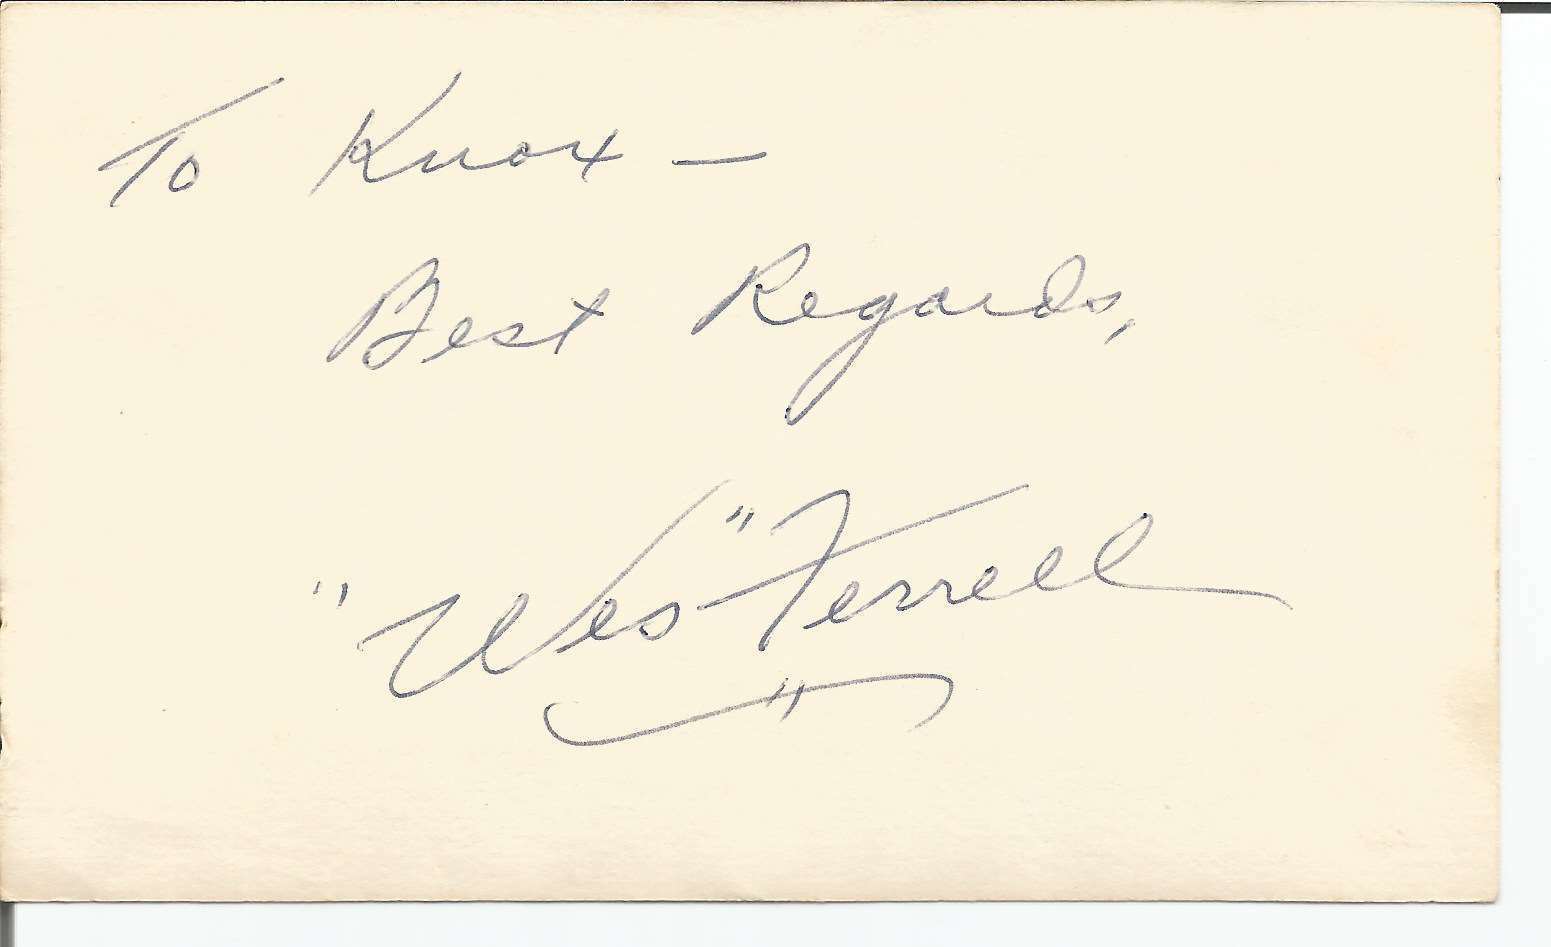 To Knox —
Best Regards,
"Wes" Ferrell
"